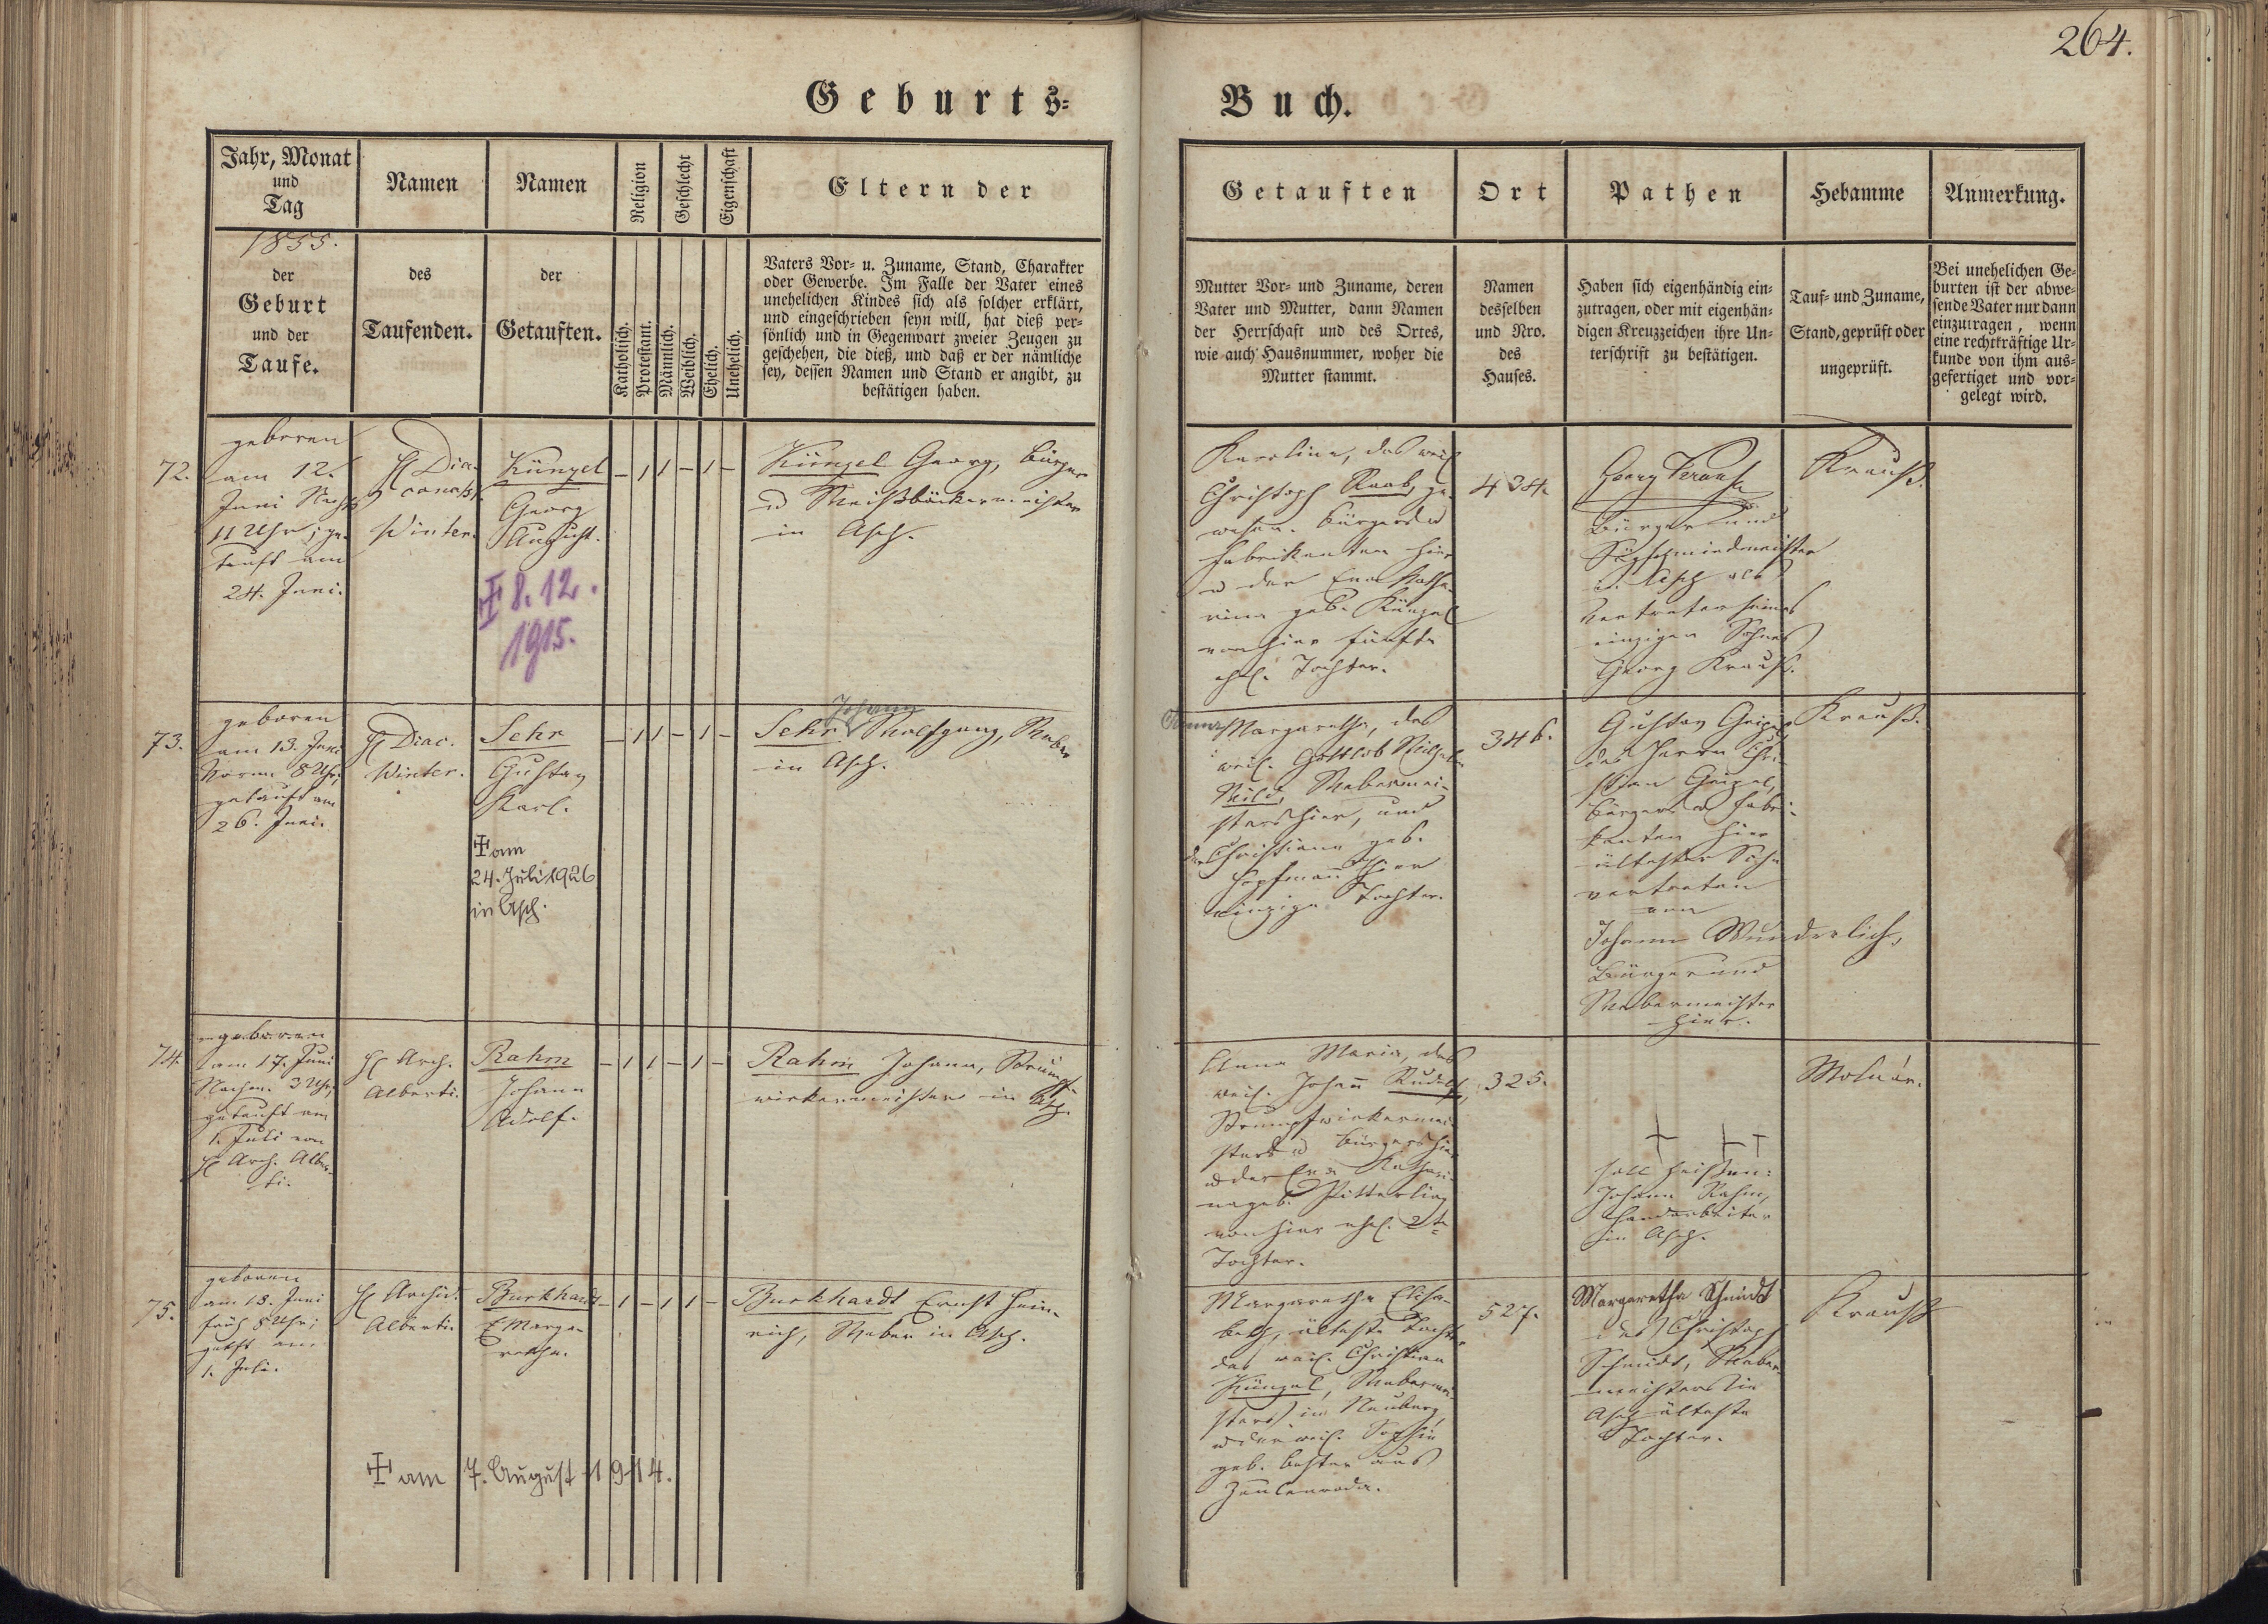 264.
Geburts-
Buch.
Jahr, Monat
und
Tag
1855.
der
Geburt
und der
Taufe.
Namen
des
Taufenden.
Namen
der
Getauften.
Religion
Katholisch.
Protestant.
Geschlecht
Männlich.
Weiblich.
Eigenschaft
Ehelich.
Unehelich.
Eltern der
Vaters Vor- u. Zuname, Stand, Charakter
oder Gewerbe. Im Falle der Vater eines
unehelichen Kindes sich als solcher erklärt,
und eingeschrieben seyn will, hat dieß per-
sönlich und in Gegenwart zweier Zeugen zu
geschehen, die dieß, und daß er der nämliche
sey, dessen Namen und Stand er angibt, zu
bestätigen haben.
Getauften
Mutter Vor- und Zuname, deren
Vater und Mutter, dann Namen
der Herrschaft und des Ortes,
wie auch Hausnummer, woher die
Mutter stammt.
Ort
Namen
desselben
und Nro.
des
Hauses.
Pathen
Haben sich eigenhändig ein-
zutragen, oder mit eigenhän-
digen Kreuzzeichen ihre Un-
terschrift zu bestätigen.
Hebamme
Tauf- und Zuname,
Stand, geprüft oder
ungeprüft.
Anmerkung.
Bei unehelichen Ge-
burten ist der abwe-
sende Vater nur dann
einzutragen, wenn
eine rechtkräftige Ur-
kunde von ihm aus-
gefertiget und vor-
gelegt wird.
72.
geboren
am 12.
Juni Nachts
11 Uhr; ge-
tauft am
24. Juni.
Winter.
Künzel
Georg
August.
‡ 8. 12.
1915.
– 1 1 – 1 –
Künzel Georg, Bürger
u Weißbäckermeister
in Asch.
Karoline, des weil.
Christoph Raab, ge-
wesen. Bürgers u
Fabrikanten hier
u der Eva Katha-
rina geb. Künzel
von hier fünfte
ehl. Tochter.
434.
Georg Krauß
Bürger und
in Asch als
Vertreter seines
einzigen Sohnes
Georg Krauß.
Krauß.
73.
geboren
am 13. Juni
Vorm. 8 Uhr,
getauft am
26. Juni.
H Diac.
Winter.
Sehr
Gustav
Karl.
‡ am
24. Juli 1926
in Asch.
– 1 1 – 1 –
Johann
Sehr Wolfgang, Weber
in Asch.
Margaretha, des
weil. Gottlob
Webermei-
sters hier, und
der Christiana geb.
Hopfmann hier
einzige Tochter.
346.
Gustav Geipel
des Herrn Chri-
stian Geipel,
Bürgers u Fabri-
kanten hier
ältester Sohn
vertreten
von
Johann Wunderlich,
Bürger und
Webermeister
hier.
Krauß.
74.
geboren
am 17. Juni
Nachm. 3 Uhr,
getauft am
1. Juli von
H Arch. Alber-
ti.
H Arch.
Alberti.
Rahm
Johann
Adolf.
– 1 1 – 1 –
Rahm Johann, Strumpf-
wirkermeister in Asch.
Anna Maria, des
weil. Johann Rudolf,
Strumpfwirkermei-
sters u Bürgers hier
u der Eva Kathari-
na geb. Pitterling
von hier ehl. 2te
Tochter.
325.
soll heißen:
Johann Rahm,
Handarbeiter
in Asch.
Molnár.
75.
geboren
am 18. Juni
früh 8 Uhr;
getft am
1. Juli.
H Archid.
Alberti.
Burkhardt
E Marga-
retha.
‡ am 7. August 1914.
– 1 – 1 1 –
Burkhardt Ernst Hein-
rich, Weber in Asch.
Margaretha Elisa-
beth, älteste Tochter
des weil. Christian
Künzel, Webermei-
sters in Neuberg
u der weil. Sophie
geb. aus
Zeulenroda.
527.
Margaretha Schmidt
des Christoph
Schmidt, Weber-
meisters in
Asch älteste
Tochter.
Krauß